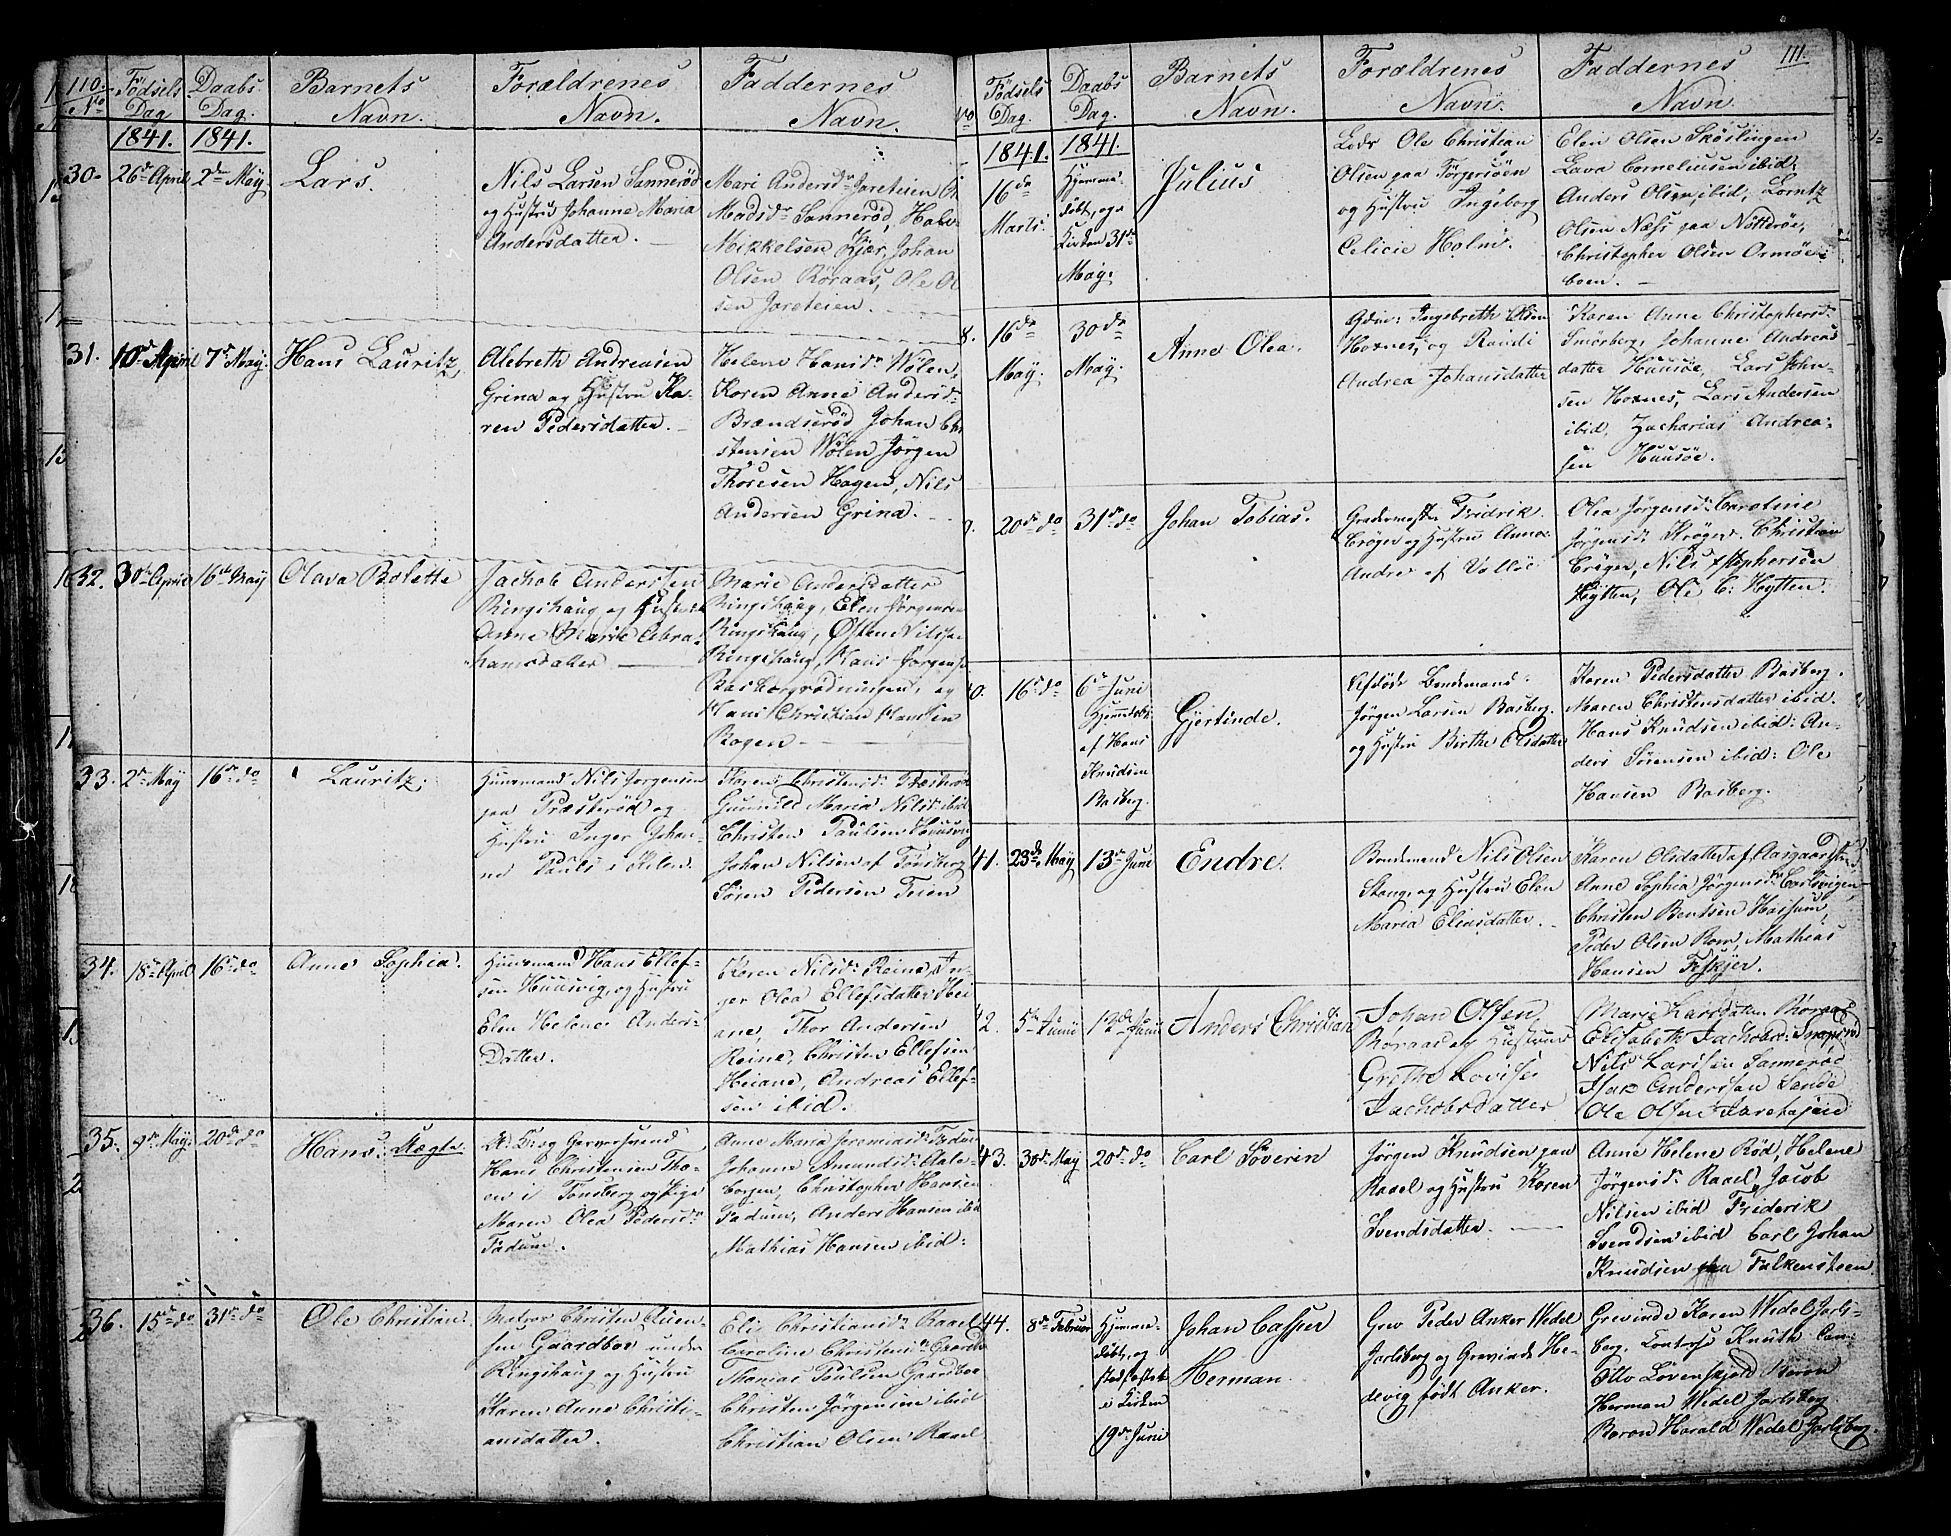 110.
No
Fødsels Dag
Daabs Dag.
Barnets Navn.
Forældrenes Navn.
Faddernes Navn.
1841. 1841.
30.
26de April
2den May
Lars.
Nils Larsen Sannerød
og Hustru Johanne Maria
Andersdatter.
Mari Andersdr Jareteien
Madsdr Sannerød, Halv
Mikkelsen Kjær, Johan
Olsen Røraas, Ole Ol
sen Jareteien.
31.
10de April
7de May.
Hans Lauritz,
Alebreth Andreasen
Grina og Hustru Ka-
ren Pedersdatter.
Helene Hansdr Wølen,
Karen Anne Andersd:
Brændsrød Johan Chri
stensen Wølen Jørgen
Thoresen Hagen, Nils
Andersen Grina.
32.
30te April
16de May
Olava Bolette
Jachob Anderssen
Ringshaug og Hustru
Anne Marie Abra-
hamsdatter
Marie Andersdatter
Ringshaug, Elen Jørgensen
Ringshaug, Østen Nilssen
Ringshaug, Hans Jørgens
og
Hans Christian Hansen
Bogen
33.
2den May
16de do
Lauritz.
Huusmand Nils Jørgensen
paa Præsterød og
Hustru Inger Johan-
ne
Karen Christensdr Præsterød
Gunnild Maria Nilsdr ibid
Christen Paulsen Huusvig
Johan Nilsen af Tønsberg
Søren Pedersen Teien
34.
18de April
16de do
Anne Sophia.
Huusmand Hans Ellef-
sen Huusvig, og Hustru
Elen Helene Anders-
Datter.
Karen Nilsd: Reine, In-
ger Olea Ellefsdatter Hei
ane, Thor Andersen
Reine, Christen Ellefsen
Heiane, Andreas Ellef-
sen ibid.
35.
9de May.
20de do
Hans: Uægte.
Hans Christensen Tho-
en i Tønsberg og Pige
Maren Olea Pedersdr
Tadum.
Anne Maria Jeremiasdr Tadum
Johanne Amundsdr Aule-
Christopher Hansen
Tadum, Anders Hansen ibid
Mathias Hansen ibid:
36.
15de do
31te do
Ole Christian.
Christen Auen-
sen Gaardbo under
Ringshaug og Hustru
Karen Anne Christi-
ansdatter.
Eli Christiansdr Raael
Caroline Christensdr Gaardbo
Thomas Poulsen Gaardboe
Christen Jørgensen ibid
Christian Olsen Raael
111.
No
Fødsels Dag.
Daabs Dag.
Barnets Navn.
Forældrenes Navn.
Faddernes Navn.
1841. 1841.
16de
Marts.
Hjemme-
døbt, og i
Kirken 31te
May.
Julius
Lods Ole Christian
Olsen paa Törgersöen
og Hustru Ingeborg
Celicie Holm.
Elen Olsen
Lava Corneliusen ibid,
Anders Olsen ibid, Lorntz
Olsen Næss paa Nötteröe,
Christopher Olsen Ormöe-
8.
16de
May.
30de
May.
Anne Olea.
Gdm: Ingebreth Olsen
Hoxnes, og Randi
Andrea Johansdatter
Karen Anne Christophersd:
Smörberg, Johanne Andreas
datter Huusöe, Lars John-
sen Hoxnes, Lars Andersen
ibid, Zacharias Andrea-
sen Huusöe.
9.
20de do
31te do
Johan Tobias.
Fridrik
Cröger og Hustru Anna
Andre af Vallöe
Olea Jørgensd: Caroline
Jørgensd: Krøger. Christian
Cröger, Nils Stephersen
Hytten, Ole C: Hytten.
0.
16de do
6te Juni
Hjemmedøbt
af Hans
Knudsen
Basberg.
Gjertinde.
Afdöde Bondemand:
Jörgen Larsen Basberg.
og Hustru Birthe Olsdatter
Karen Pedersdatter Basberg.
Maren Christensdatter ibid.
Hans Knudsen ibid: An-
ders Sörensen ibid: Ole
Hansen Basberg.
41.
23de May
13de Juni
Endre.
Bondemand Nils Olsen
Stang, og Hustru Elen
Maria Eliasdatter.
Karen Olsdatter af Aasgaardstr
Anne Sophia Jørgensdr Carlsvigen
Christen Bentsen Hassum
Peder Olsen Rom, Mathias
Hansen Feskjer.
42.
5te Junii
12de Junii
Anders Christian
Johan Olsen
Roraas og Hustrue
Grethe Lovise
Jachobsdatter
Marie Larsdatter Røraas
Elisabeth Jachobsd:
Nils Larssen Sannerød
Isak Anderssen Sande
Ole Olsen Jaretejeie
43.
30de May
20de do
Carl Söverin
Jørgen Knudsen paa
Raael og Hustru Karen
Svendsdatter.
Anne Helene Rød, Helene
Jørgensd: Raael, Jacob
Nilsen ibid Friderik
Svendsen ibid Carl Johan
Knudsen paa Falkensteen
44.
8de Februar
Hjemme-
döbt, og
stadfæstet
i Kirken
19de Juni
Johan Casper
Herman
Grev Peder Anker Wedel
Jarlsberg og Grevinde He-
devig født Anker.
Grevinde Karen Wedel Jarls-
berg, Comtesse Knuth Cam:
Otto Løvenskjold Baron
Herman Wedel Jarlsberg
Baron Harald Wedel Jarlsberg.